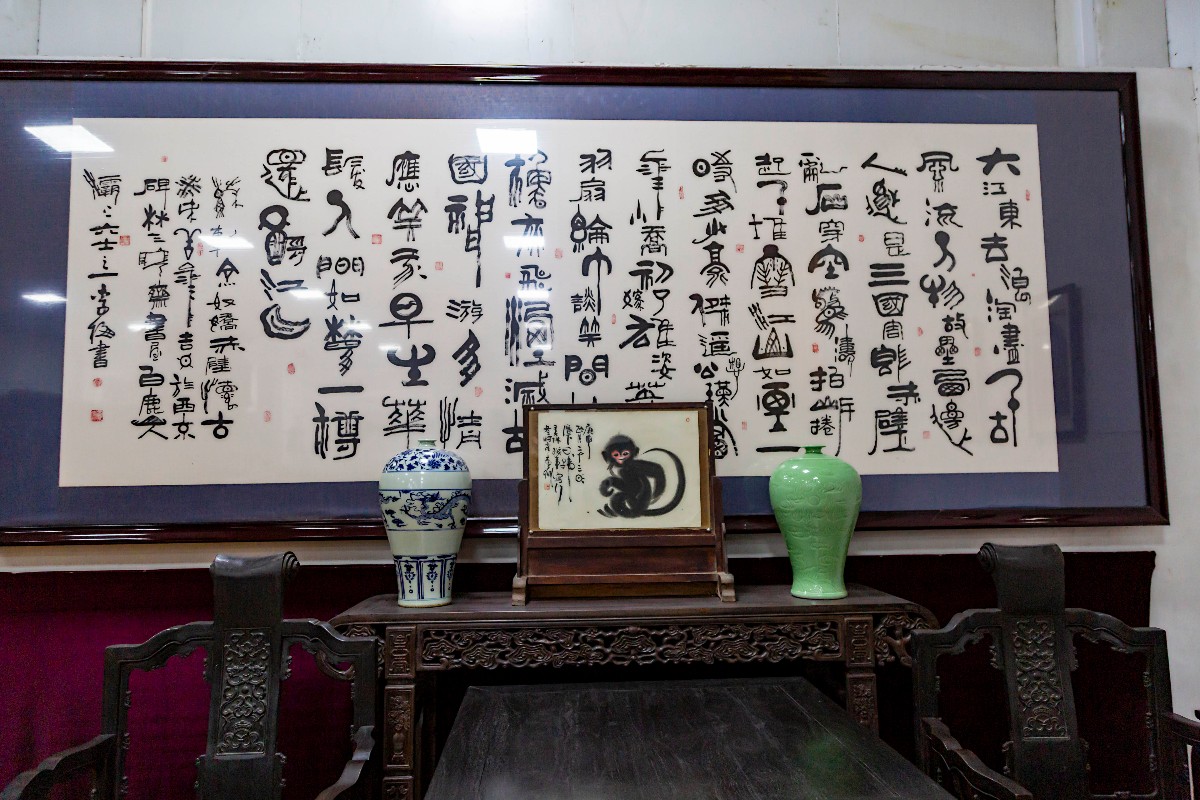 大江東去浪淘盡千古
風流人物故壘西邊
人道是三國周郎赤壁
亂石穿空驚濤拍岸捲
起千堆雪江山如画一
時多少豪傑遥想公瑾當
年小喬初嫁了雄姿英
羽扇綸巾談笑間
櫓灰飛煙滅故
國神游多情
應笑我早生華
髮人間如夢一樽
還酹江月
蘇軾念奴嬌赤壁懷古
年吉日於西京
碑林三齋書屋白鹿人
灞
書